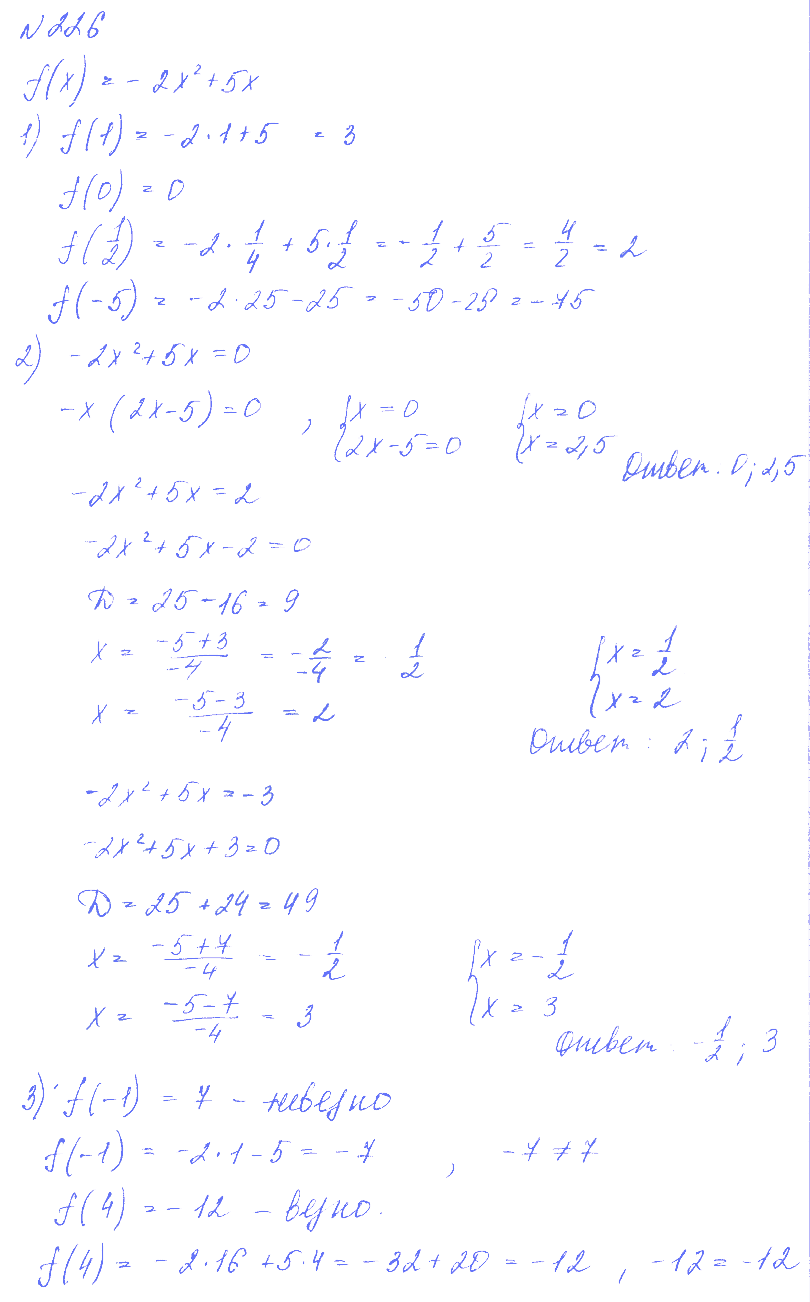 N 226
f(x) = -2x² + 5x
1) f(1) = -2·1+5 = 3
f(0) = 0
f(1/2) = -2·1/4 + 5·1/2 = -1/2 + 5/2 = 4/2 = 2
f(-5) = -2·25-25 = -50-25 = -75
2) -2x²+5x=0
-x(2x-5)=0 , {x=0 {x=0
{2x-5=0 {x=2,5
Ответ. 0; 2,5
-2x²+5x=2
-2x²+5x-2=0
D = 25-16 = 9
x = (-5+3)/-4 = -2/-4 = 1/2 {x=1/2
x = (-5-3)/-4 = 2 {x=2
Ответ: 2; 1/2
-2x²+5x=-3
-2x²+5x+3=0
D = 25+24 = 49
x = (-5+7)/-4 = -1/2 {x=-1/2
x = (-5-7)/-4 = 3 {x=3
Ответ. -1/2; 3
3) f(-1) = 7 - неверно
f(-1) = -2·1-5 = -7 , -7≠7
f(4) = -12 - верно.
f(4) = -2·16+5·4 = -32+20 = -12 , -12=-12